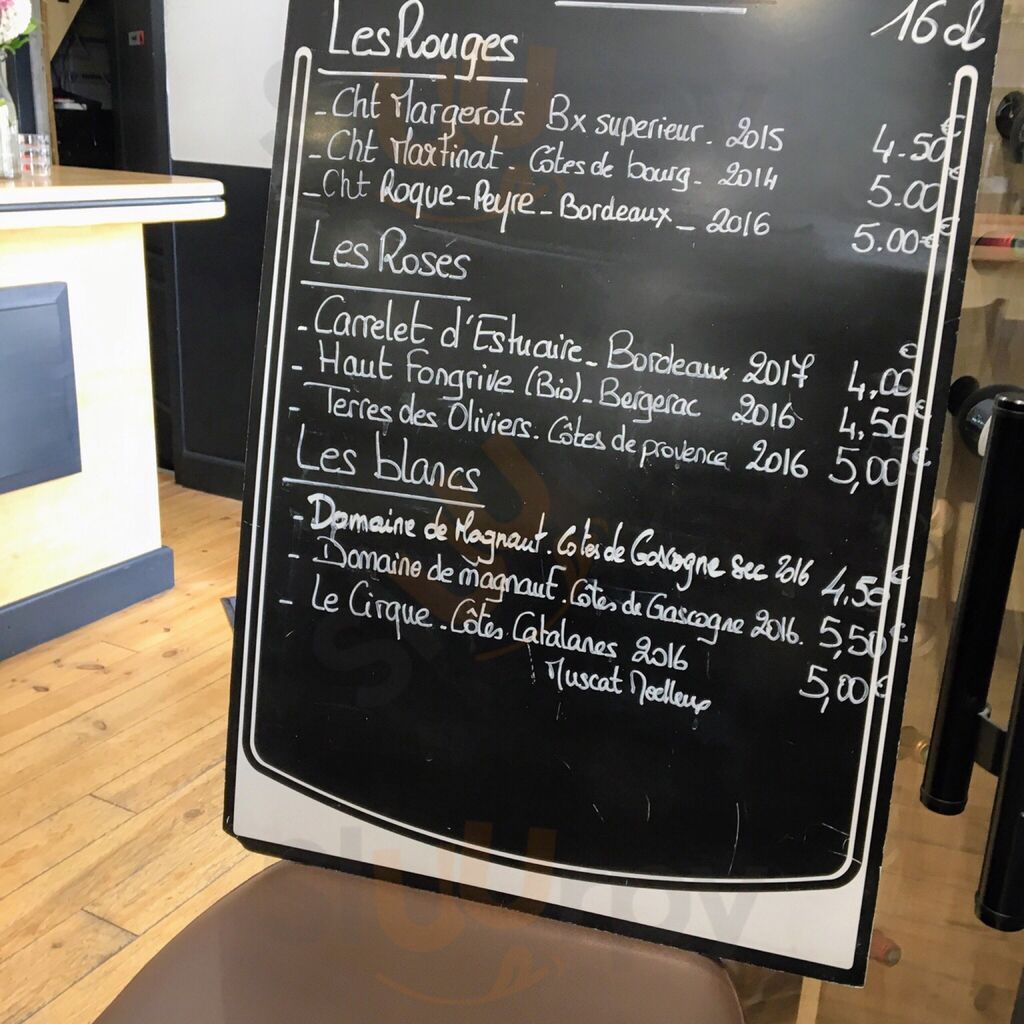 16cl
Les Rouges
- Cht Margerots Bx superieur. 2015 4.50€
- Cht Martinat. Côtes de bourg. 2014 5.00€
- Cht Roque-Peyre - Bordeaux - 2016 5.00€
Les Roses
- Carrelet d'Estuaire - Bordeaux 2017 4,00€
- Haut Fongrive (Bio) - Bergerac 2016 4,50€
- Terres des Oliviers. Côtes de provence 2016 5,00€
Les blancs
- Domaine de Magnaut. Côtes de Gascogne sec 2016 4,50€
- Domaine de magnaut. Côtes de Gascogne 2016. 5,50€
- Le Cirque. Côtes Catalanes 2016 5,00€
Muscat Moelleux